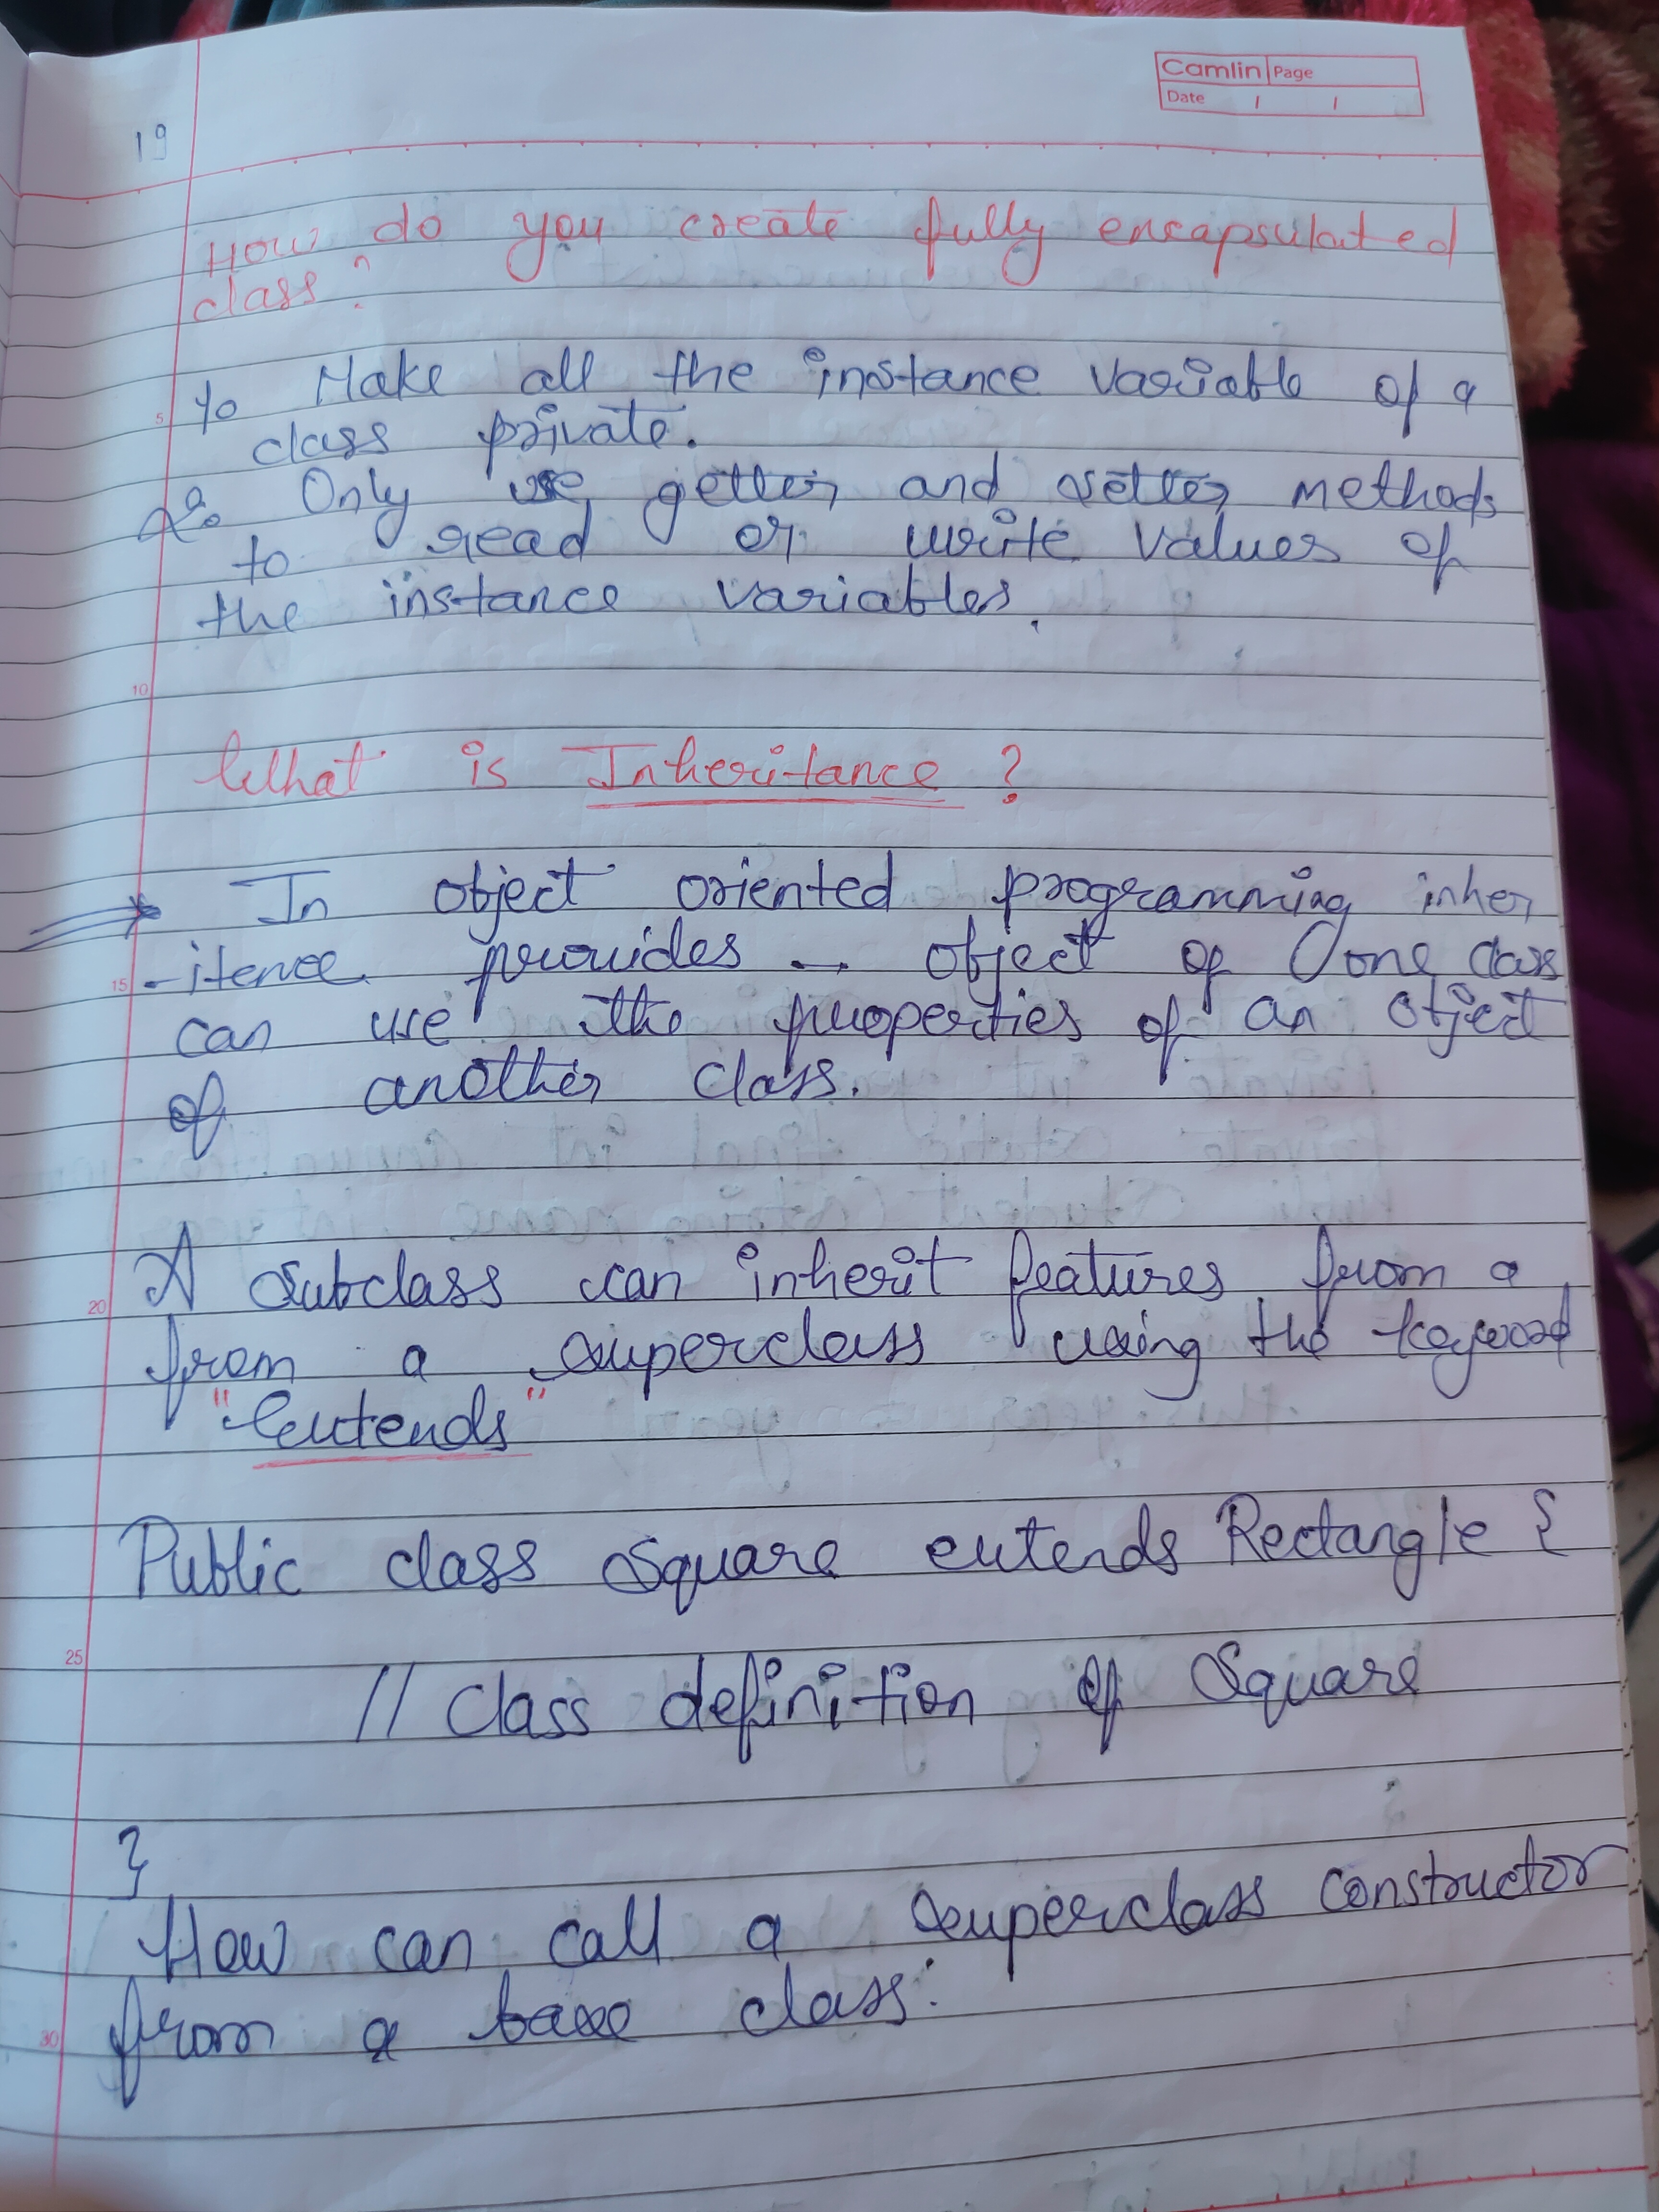 Camlin Page
Date / /
19
How do you create fully encapsulated
class?
1. Make all the instance variable of a
5
class private.
2. Only use getter and setter methods
to read or write values of
the instance variables.
10
What is Inheritance ?
In object oriented programming inher
15
-itence provides - object of one class
can use the properties of an object
of another class.
A subclass can inherit features from a
20
from a superclass using the keyword
"extends"
Public class Square extends Rectangle {
25
// Class definition of Square
}
How can call a superclass constructor
from a base class:
30